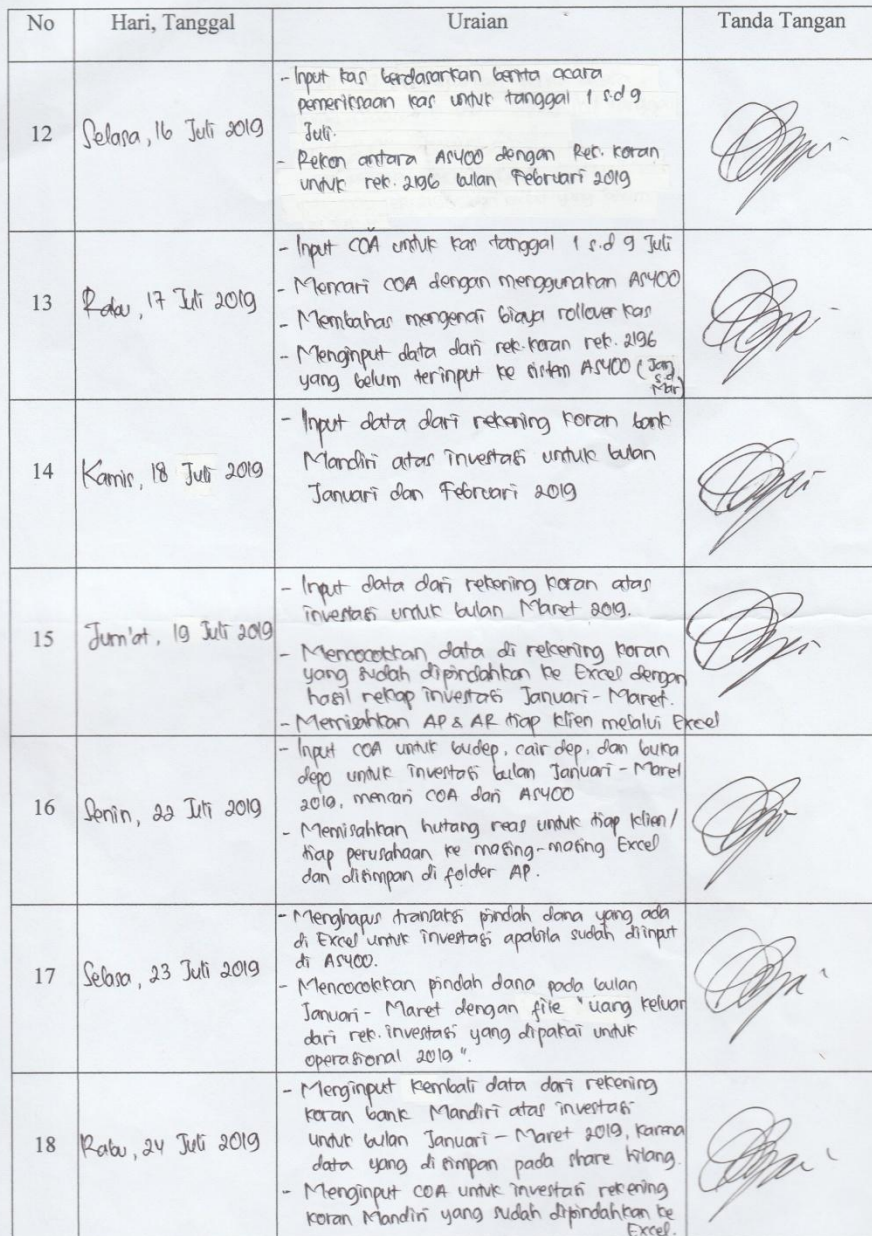 No Hari, Tanggal Uraian Tanda Tangan
12 Selasa, 16 Juli 2019
- Input kas berdasarkan berita acara
pemeriksaan kas untuk tanggal 1 s.d 9
Juli.
- Rekon antara AS400 dengan Rek. koran
untuk rek. 2196 bulan Februari 2019
13 Rabu, 17 Juli 2019
- Input COA untuk kas tanggal 1 s.d 9 Juli
- Mencari COA dengan menggunakan AS400
- Membahas mengenai biaya rollover kas
- Menginput data dari rek.koran rek. 2196
yang belum terinput ke sistem AS400 (Jan
s.d
Mar)
14 Kamis, 18 Juli 2019
- Input data dari rekening koran bank
Mandiri atas investasi untuk bulan
Januari dan Februari 2019
15 Jum'at, 19 Juli 2019
- Input data dari rekening koran atas
investasi untuk bulan Maret 2019.
- Mencocokkan data di rekening koran
yang sudah dipindahkan ke Excel dengan
hasil rekap investasi Januari - Maret.
- Memisahkan AP & AR tiap klien melalui Excel
16 Senin, 22 Juli 2019
- Input COA untuk budep, cair dep, dan buka
depo untuk investasi bulan Januari - Maret
2019, mencari COA dari AS400
- Memisahkan hutang reas untuk tiap klien/
tiap perusahaan ke masing-masing Excel
dan disimpan di folder AP.
17 Selasa, 23 Juli 2019
- Menghapus transaksi pindah dana yang ada
di Excel untuk investasi apabila sudah diinput
di AS400.
- Mencocokkan pindah dana pada bulan
Januari - Maret dengan file "uang keluar
dari rek. investasi yang dipakai untuk
operasional 2019".
18 Rabu, 24 Juli 2019
- Menginput kembali data dari rekening
koran bank Mandiri atas investasi
untuk bulan Januari - Maret 2019, karena
data yang di simpan pada share hilang.
- Menginput COA untuk investasi rekening
koran Mandiri yang sudah dipindahkan ke
Excel.